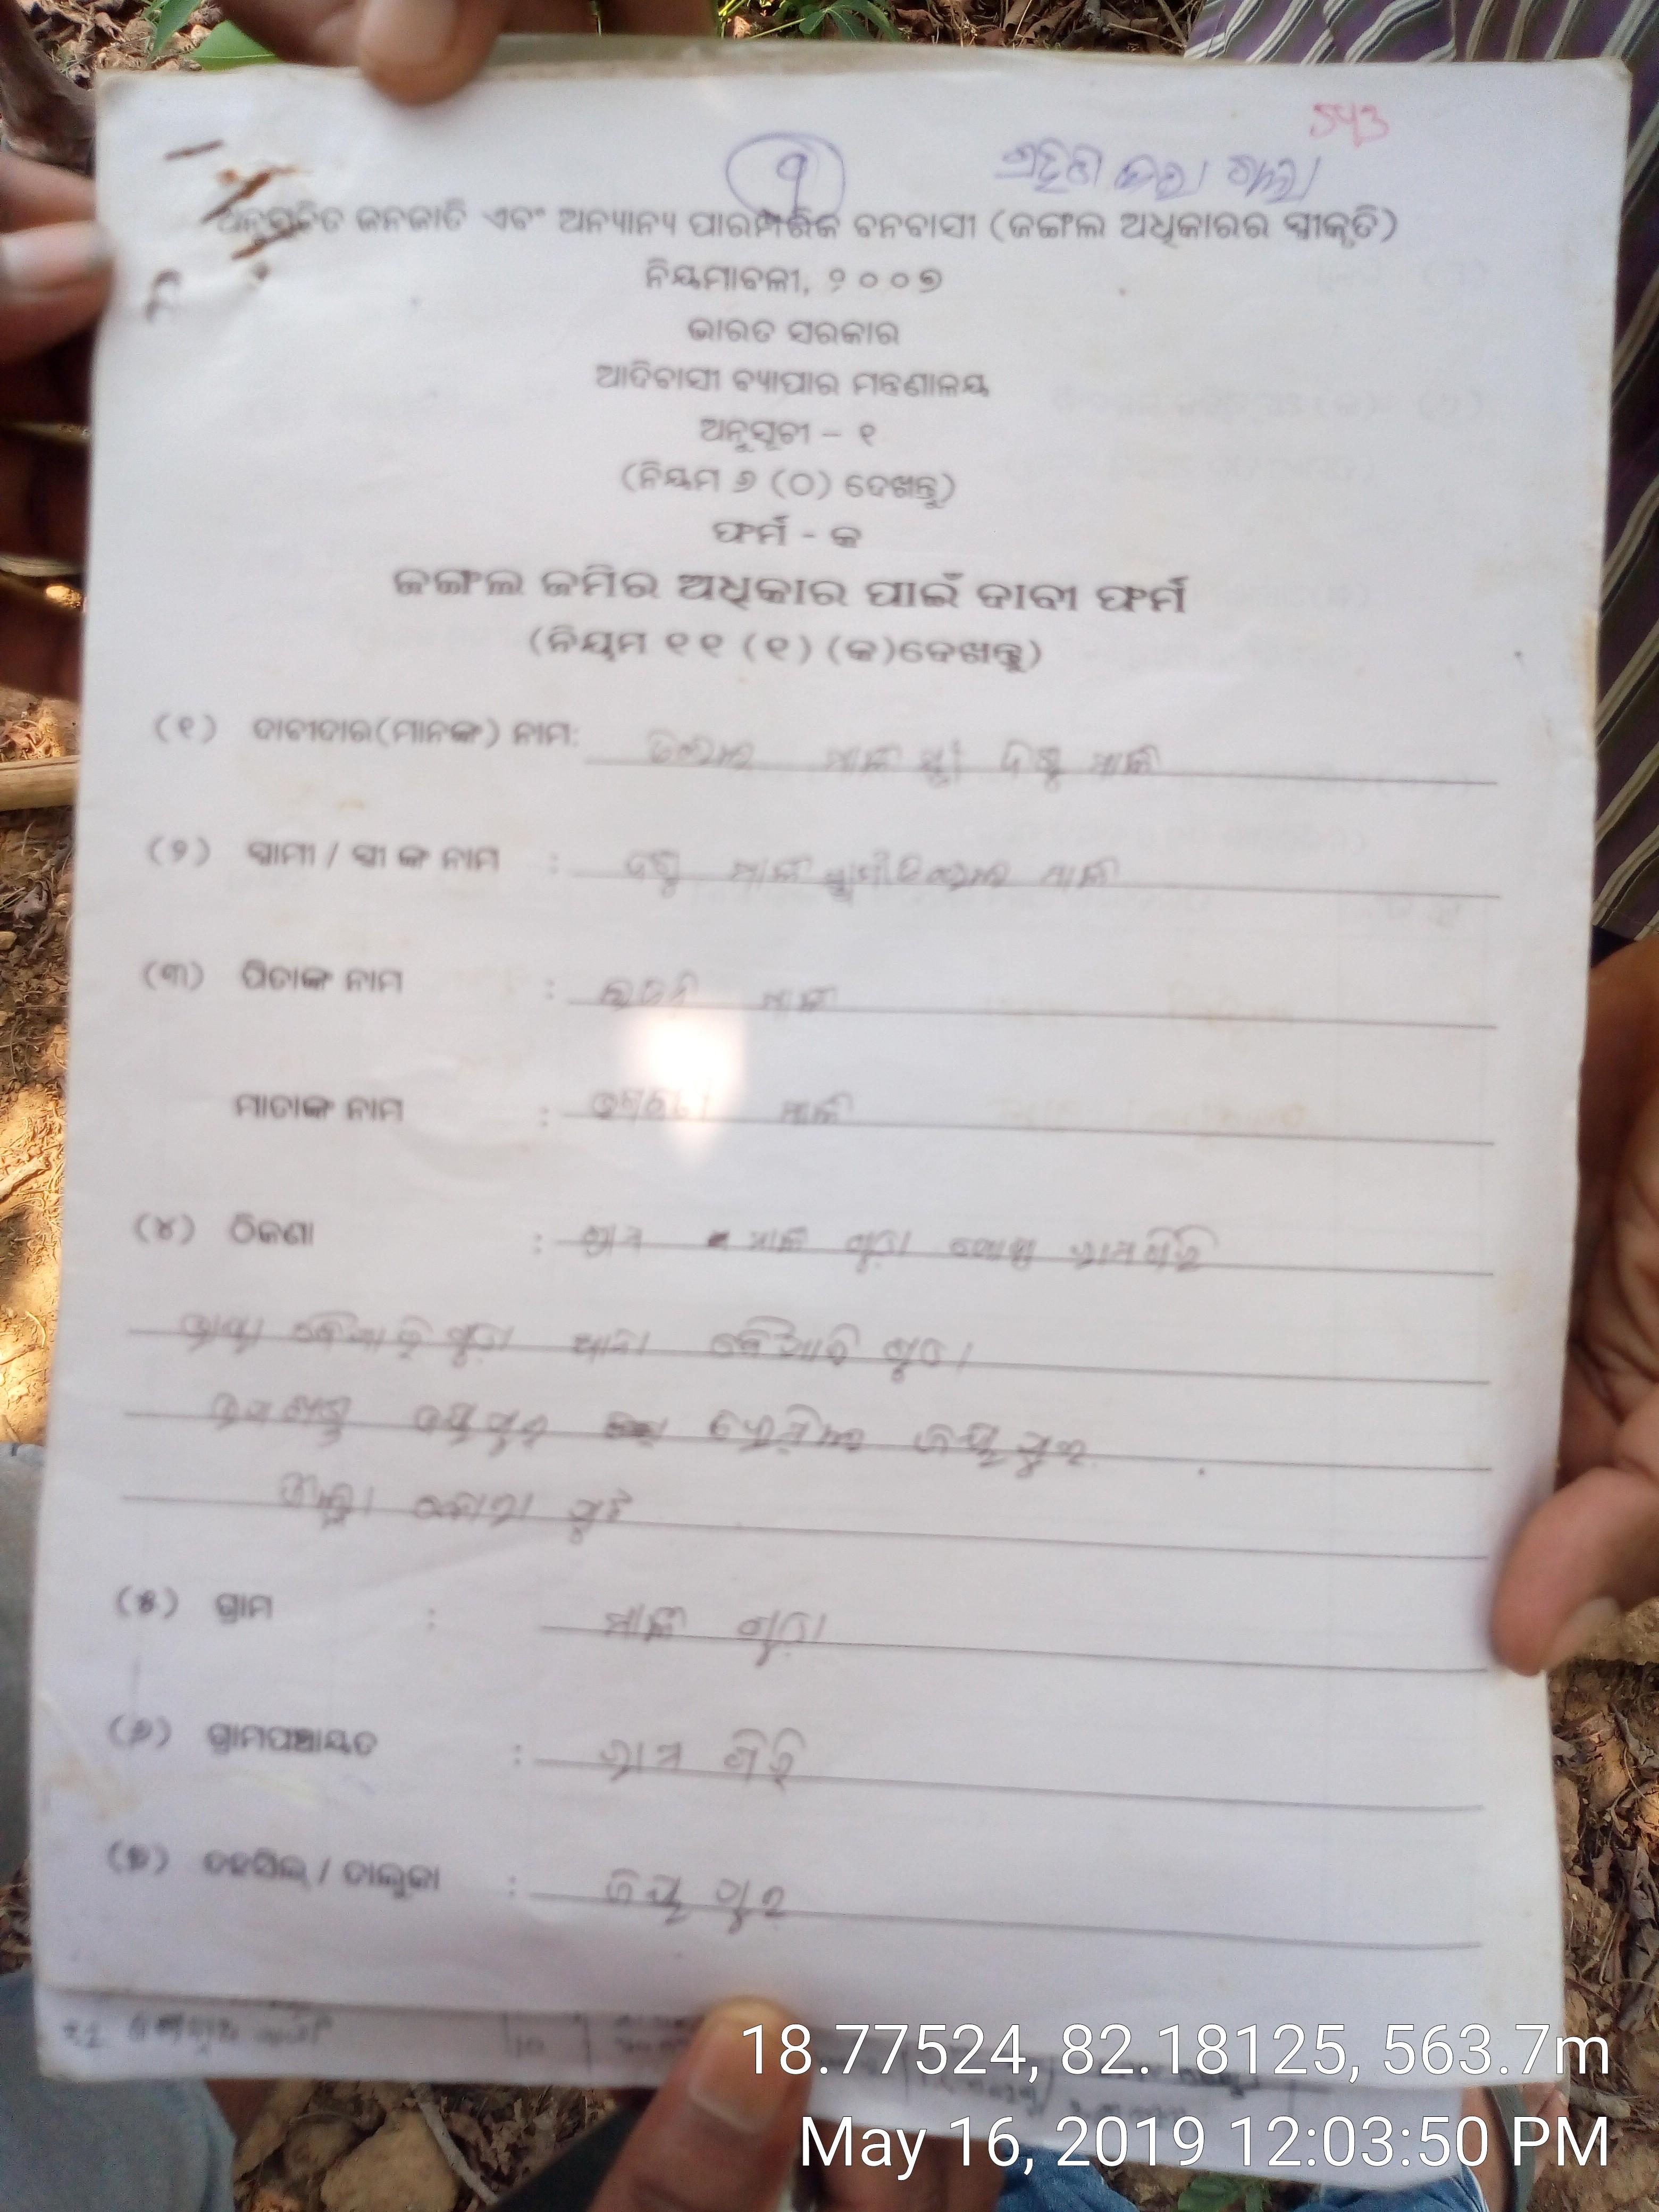 543
୧
ଗ୍ରହଣ କରା ଗଲା
ଅନୁସୂଚିତ ଜନଜାତି ଏବଂ ଅନ୍ୟାନ୍ୟ ପାରମ୍ପରିକ ବନବାସୀ (ଜଙ୍ଗଲ ଅଧିକାରର ସ୍ୱୀକୃତି)
ନିୟମାବଳୀ, ୨୦୦୭
ଭାରତ ସରକାର
ଆଦିବାସୀ ବ୍ୟାପାର ମନ୍ତ୍ରଣାଳୟ
ଅନୁସୂଚୀ – ୧
(ନିୟମ ୬ (ଠ) ଦେଖନ୍ତୁ)
ଫର୍ମ - କ
ଜଙ୍ଗଲ ଜମିର ଅଧିକାର ପାଇଁ ଦାବୀ ଫର୍ମ
(ନିୟମ ୧୧ (୧) (କ)ଦେଖନ୍ତୁ)
(୧) ଦାବୀଦାର(ମାନଙ୍କ) ନାମ: ମାଳୀ ମାଳୀ
(୨) ସ୍ୱାମୀ / ସ୍ତ୍ରୀ ଙ୍କ ନାମ : ମାଳୀ ମାଳୀ
(୩) ପିତାଙ୍କ ନାମ : ମାଳୀ
ମାତାଙ୍କ ନାମ : ମାଳୀ
(୪) ଠିକଣା : ଗ୍ରାମ ମାଳୀ ଗୁଡା ପୋଷ୍ଟ ରାମଗିରି
ଭାୟା ବୈପାରିଗୁଡା ଥାନା ବୈପାରିଗୁଡା
ଜୟପୁର ଜୟପୁର
ଜିଲ୍ଲା କୋରାପୁଟ
(୫) ଗ୍ରାମ : ମାଳୀ ଗୁଡା
(୬) ଗ୍ରାମପଞ୍ଚାୟତ : ରାମ ଗିରି
(୭) ତହସିଲ୍ / ତାଲୁକା : ଜୟପୁର
18.77524, 82.18125, 563.7m
May 16, 2019 12:03:50 PM